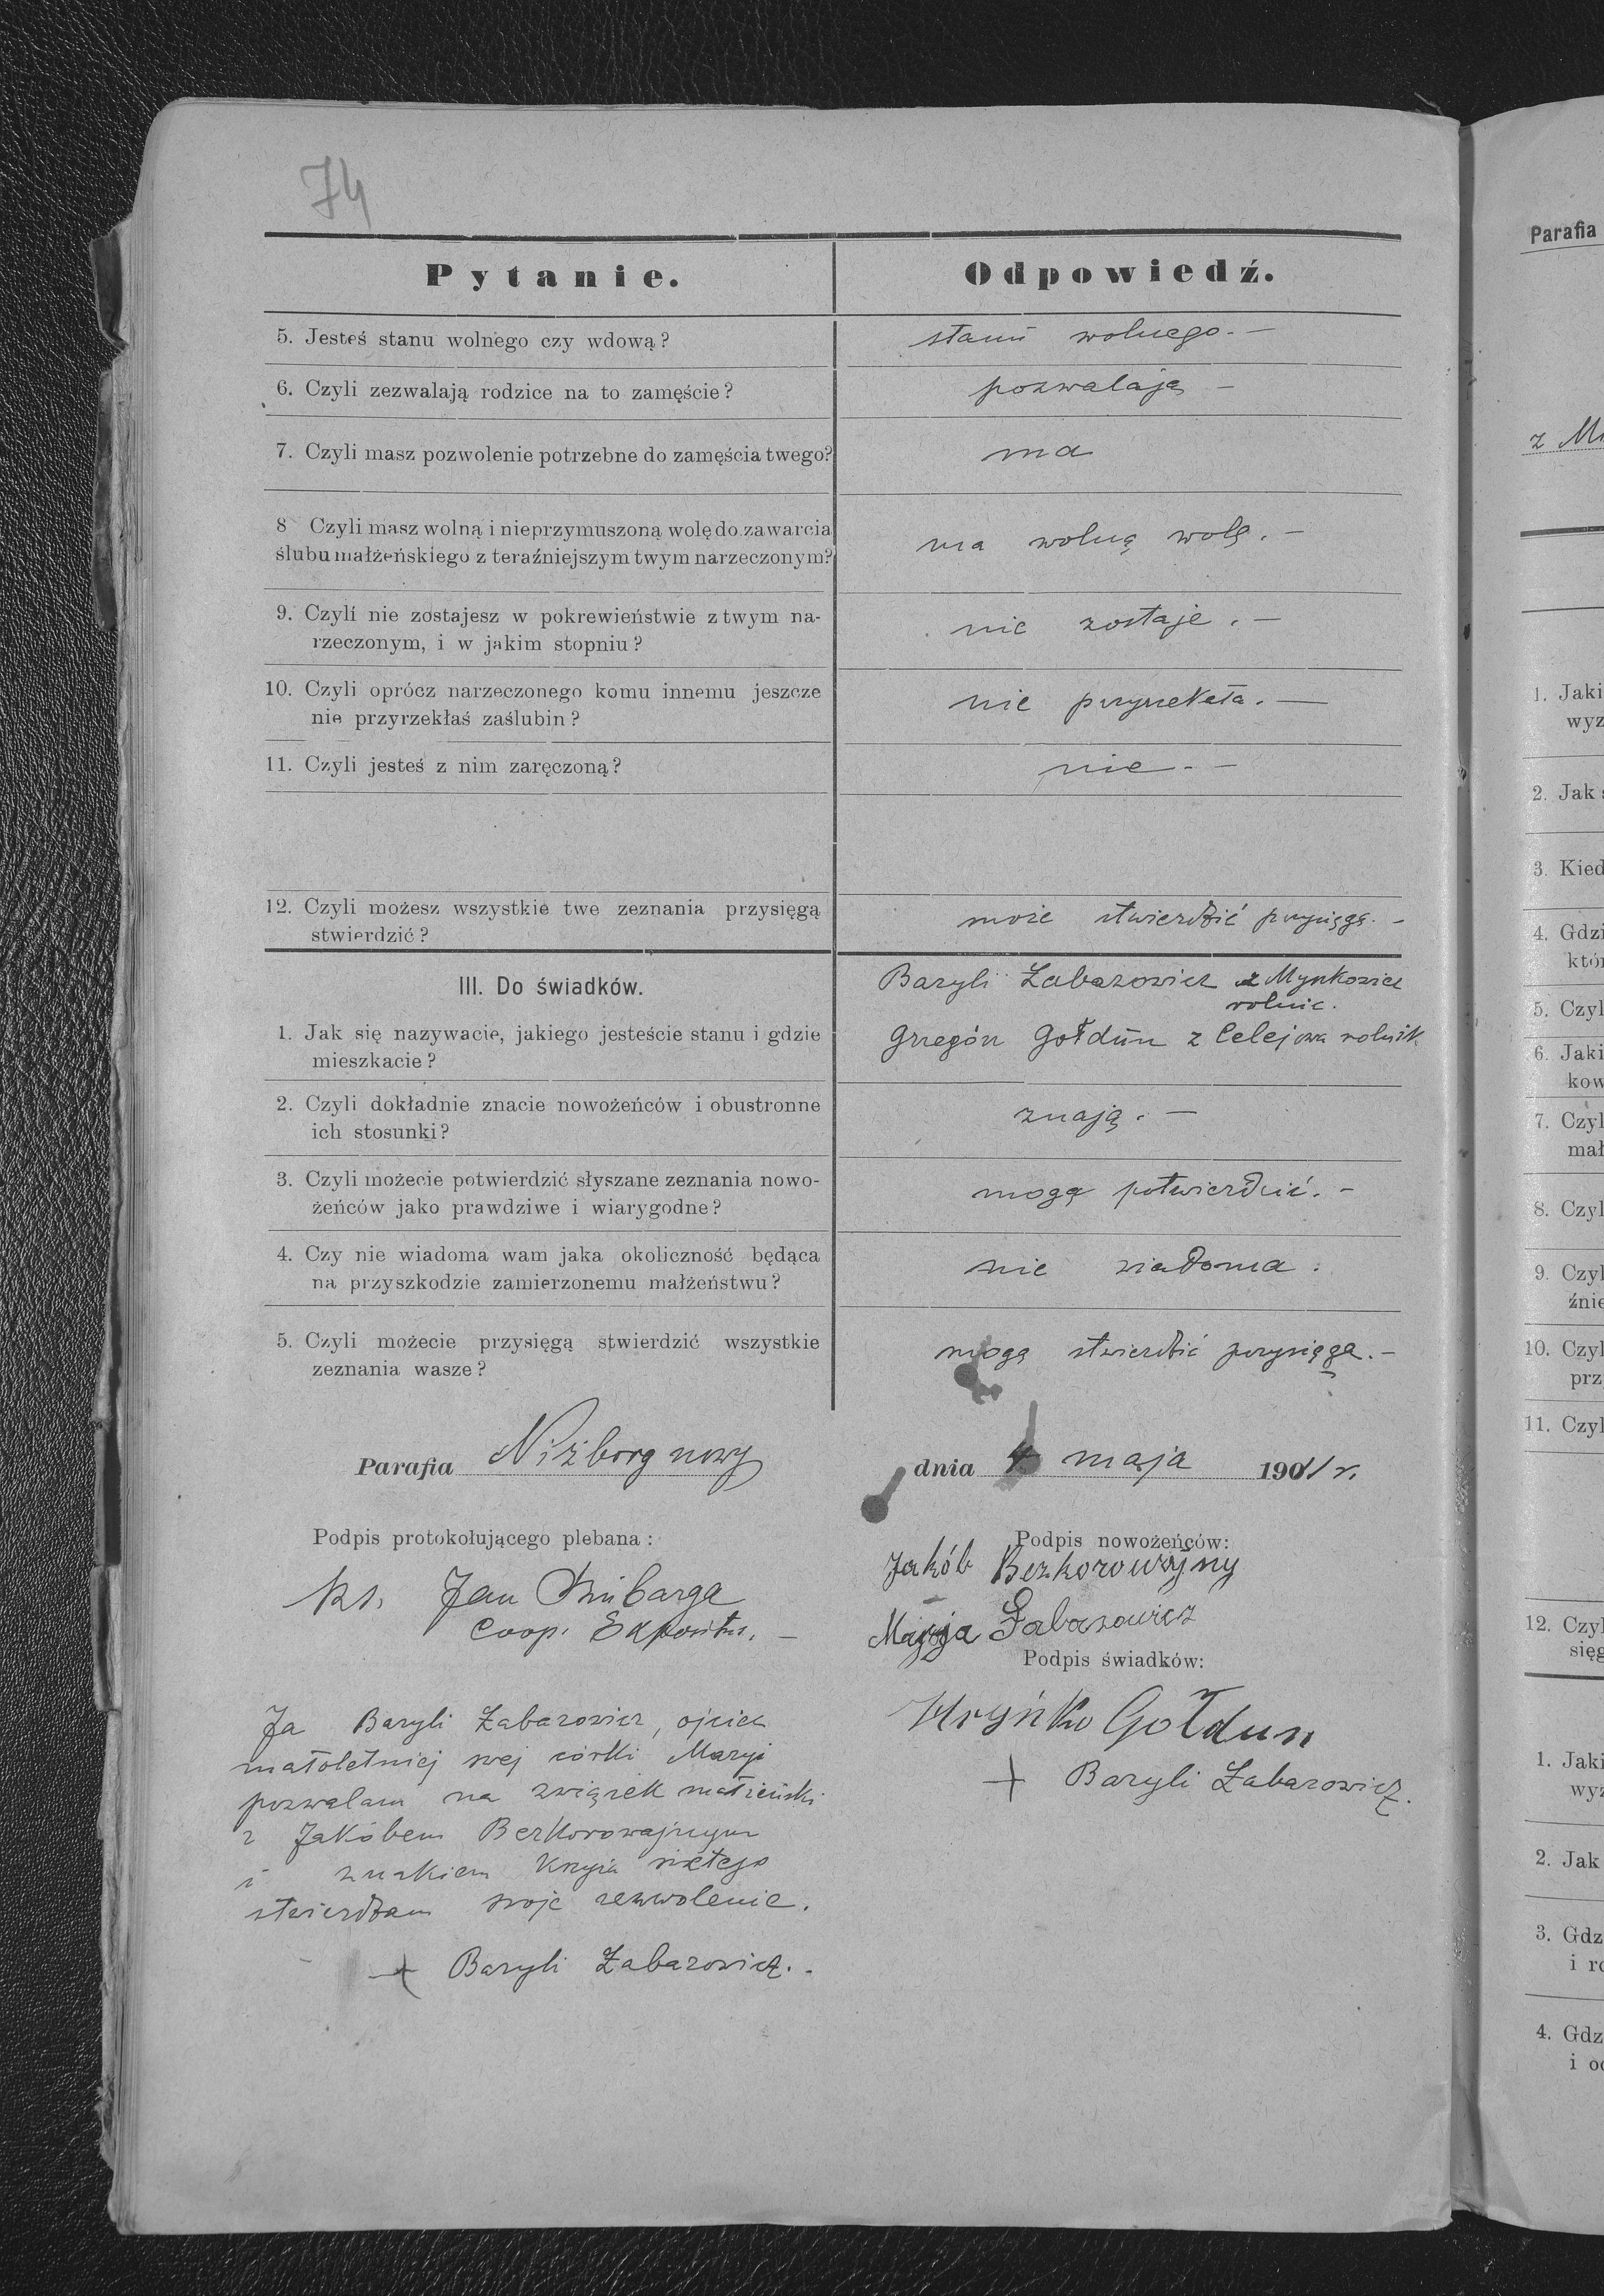 74
Pytanie.
Odpowiedź.
5. Jesteś stanu wolnego czy wdową?
stanu wolnego. —
6. Czyli zezwalają rodzice na to zamęście?
pozwalają —
7. Czyli masz pozwolenie potrzebne do zamęścia twego?
ma
8 Czyli masz wolną i nieprzymuszoną wolę do zawarcia
ślubu małżeńskiego z teraźniejszym twym narzeczonym?
ma wolną wolę. —
9. Czyli nie zostajesz w pokrewieństwie z twym na-
rzeczonym, i w jakim stopniu?
nie zostaje. —
10. Czyli oprócz narzeczonego komu innemu jeszcze
nie przyrzekłaś zaślubin?
nie przyrzekała. —
11. Czyli jesteś z nim zaręczoną?
nie. —
12. Czyli możesz wszystkie twe zeznania przysięgą
stwierdzić?
może stwierdzić przysięgą. -
III. Do świadków.
1. Jak się nazywacie, jakiego jesteście stanu i gdzie
mieszkacie?
Bazyli Łabazowicz z Mynkowiec
rolnic.
Grzegórz Gołdun z Celejowa rolnik
2. Czyli dokładnie znacie nowożeńców i obustronne
ich stosunki?
znają. —
3. Czyli możecie potwierdzić słyszane zeznania nowo-
żeńców jako prawdziwe i wiarygodne?
mogą potwierdzić. -
4. Czy nie wiadoma wam jaka okoliczność będąca
na przyszkodzie zamierzonemu małżeństwu?
nie wiadoma.
5. Czyli możecie przysięgą stwierdzić wszystkie
zeznania wasze?
mogą stwierdzić przysięgą. -
Parafia Niżborg nowy
dnia 4 maja 1901 r.
Podpis protokołującego plebana:
Ks. Jan
Coop. —
Podpis nowożeńców:
Jakób Bezkorowajny
Marja Łabazowicz
Podpis świadków:
Hryńko Gołdun
+ Bazyli Łabazowicz.
Ja Bazyli Łabazowicz, ojciec
małoletniej swej córki Maryi
pozwalam na związek małżeński
z Jakóbem Bezkorowajnym
i znakiem krzyża świętego
stwierdzam swoje zezwolenie.
+ Bazyli Łabazowicz. -
Parafia
z
1. Jaki
wyz
2. Jak
3. Kied
4. Gdzi
któr
5. Czyl
6. Jaki
kow
7. Czyl
mał
8. Czyl
9. Czyl
źnie
10. Czyl
prz
11. Czyl
12. Czyl
sięg
1. Jaki
wyz
2. Jak
3. Gdz
i ro
4. Gdz
i oc